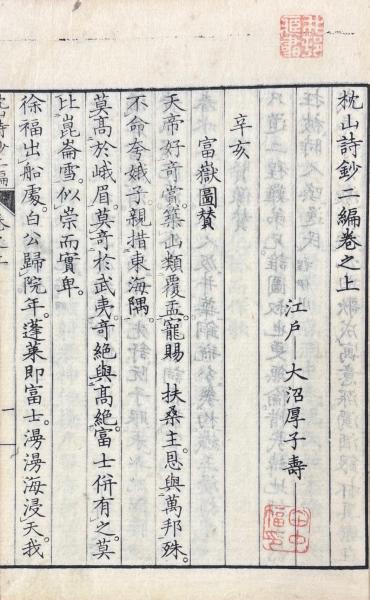 枕山詩鈔二編卷之上
江戶 大沼厚子壽
辛亥
富嶽圖贊
天帝好奇嘗築山類覆盂寵賜 扶桑主恩與萬邦殊
不命夸娥子親措東海隅
莫高於峨眉莫奇於武夷奇絕與高絕富士併有之莫
比崑崙雪似崇而實卑
徐福出船處白公歸院年蓬萊即富士漫漫海浸天我